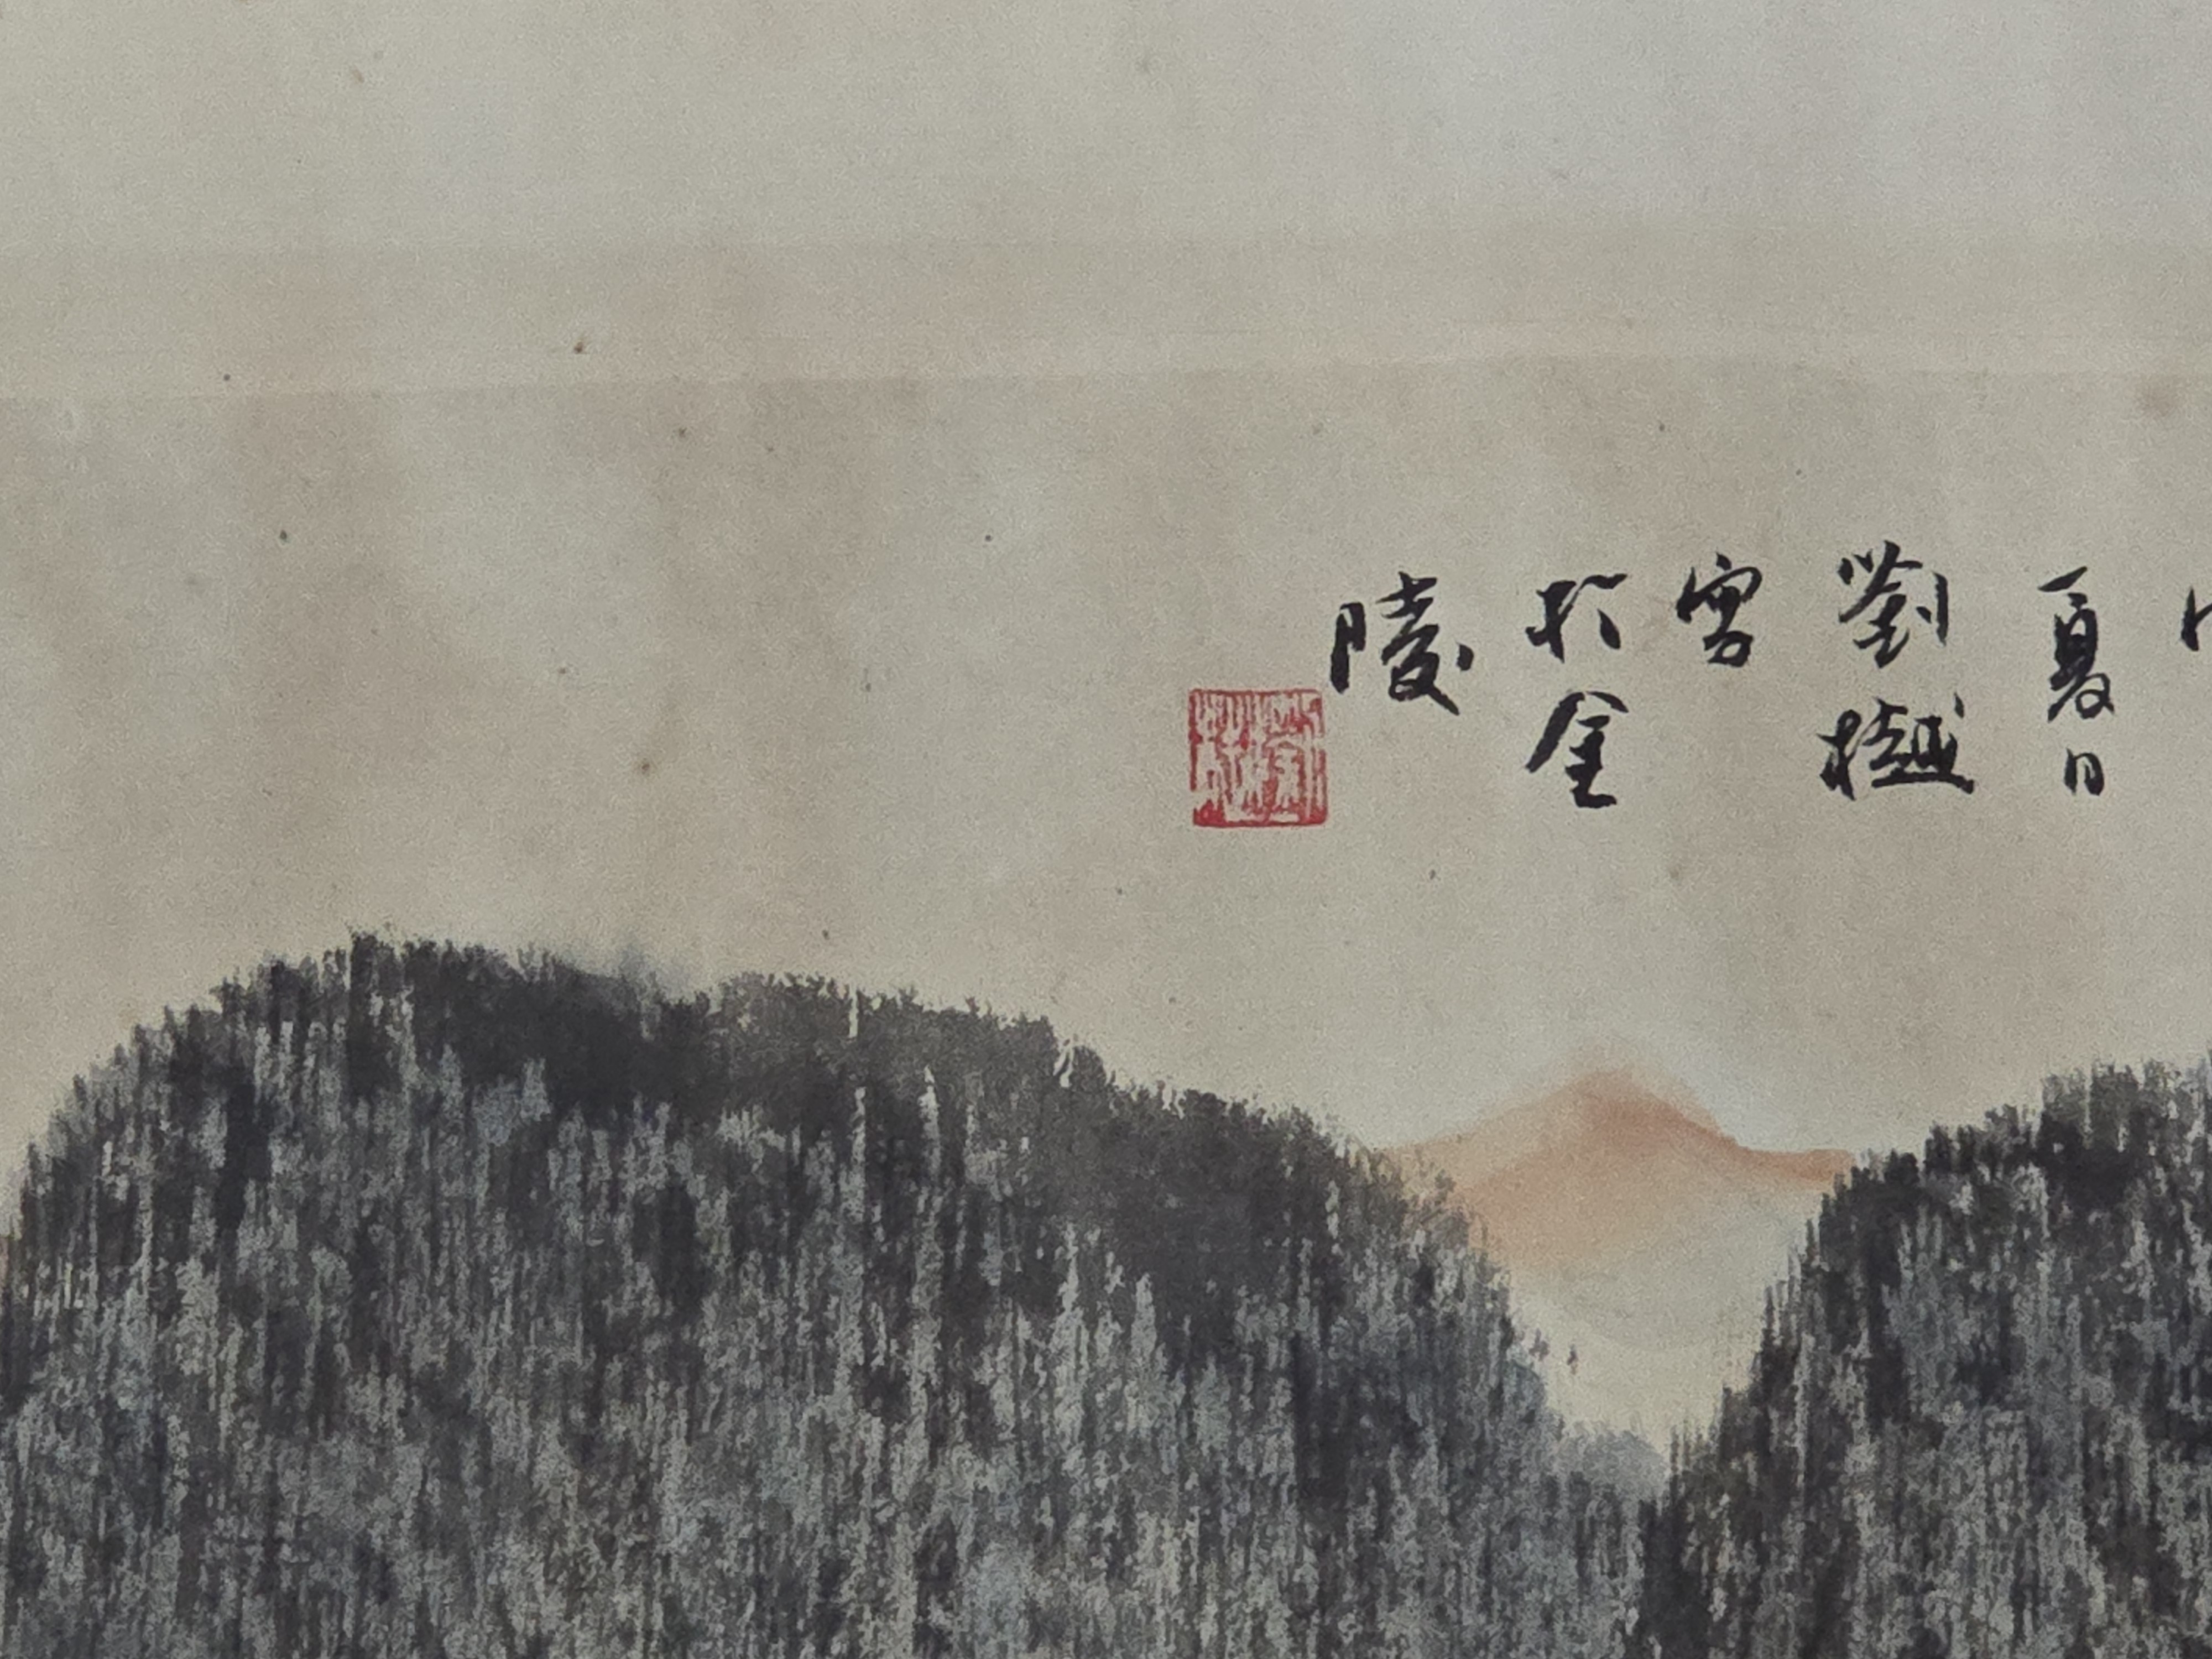 夏日
劉樾
寫
於金
陵